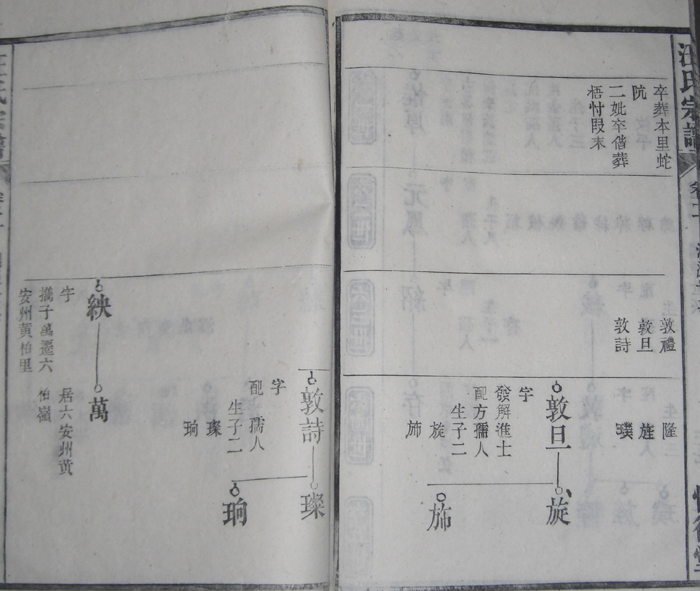 汪氏宗譜
卒葬本里蛇
阬
二妣卒偕葬
梧忖段末
敦禮
敦旦
敦詩
隆
旌
璞
敦旦
旋
字
發解進士
配方孺人
生子二
旋
斾
斾
敦詩
璨
字
配 孺人
生子二
璨
珦
珦
紻
萬
字
携子萬遷六
安州黄柏里
居六安州黄
柏嶺